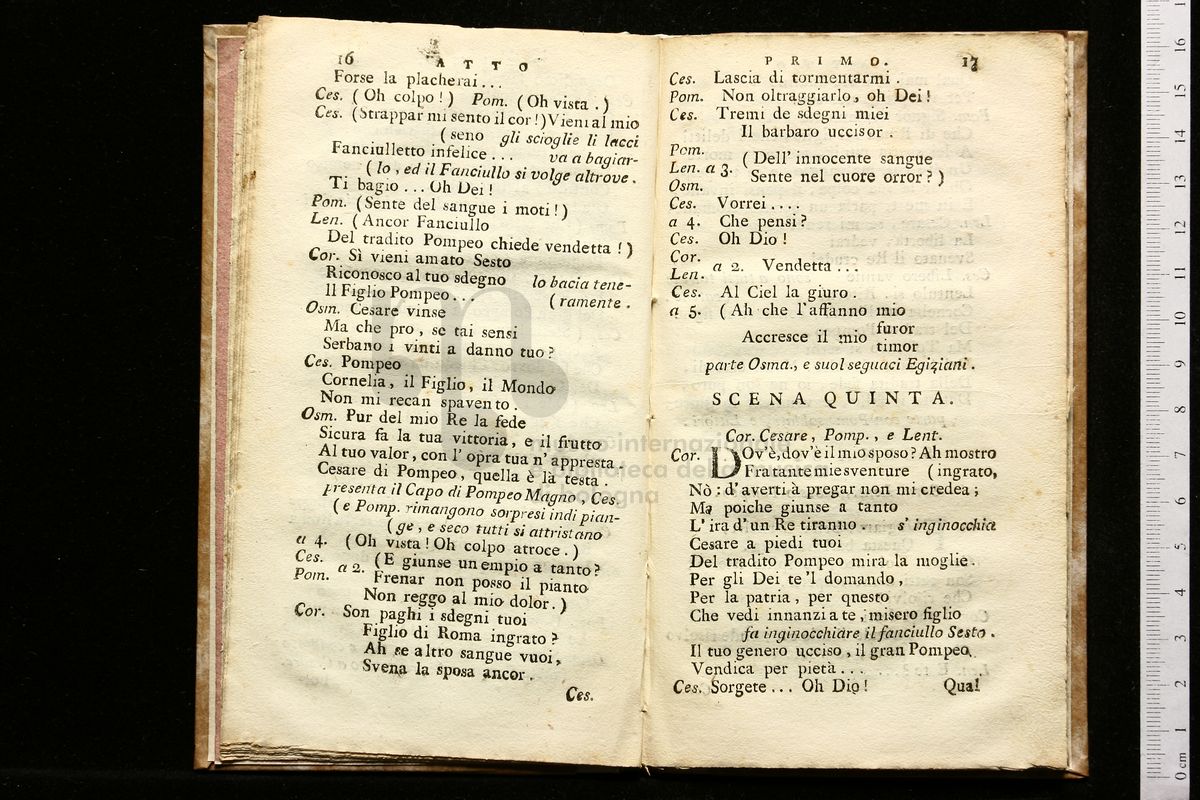 16 ATTO
Forse la placherai...
Ces. (Oh colpo!) Pom. (Oh vista.)
Ces. (Strappar mi sento il cor!) Vieni al mio
(seno gli scioglie li lacci
Fanciulletto infelice... va a bagiar-
(lo, ed il Fanciullo si volge altrove.
Ti bagio... Oh Dei!
Pom. (Sente del sangue i moti!)
Len. (Ancor Fanciullo
Del tradito Pompeo chiede vendetta!)
Cor. Sì vieni amato Sesto
Riconosco al tuo sdegno lo bacia tene-
Il Figlio Pompeo... (ramente.
Osm. Cesare vinse
Ma che pro, se tai sensi
Serbano i vinti a danno tuo?
Ces. Pompeo
Cornelia, il Figlio, il Mondo
Non mi recan spavento.
Osm. Pur del mio Re la fede
Sicura fa la tua vittoria, e il frutto
Al tuo valor, con l'opra tua n'appresta.
Cesare di Pompeo, quella è la testa.
presenta il Capo di Pompeo Magno, Ces.
(e Pomp. rimangono sorpresi indi pian-
(ge, e seco tutti si attristano
a 4. (Oh vista! Oh colpo atroce.)
Ces. Pom. a 2. (E giunse un empio a tanto?
Frenar non posso il pianto
Non reggo al mio dolor.)
Cor. Son paghi i sdegni tuoi
Figlio di Roma ingrato?
Ah se altro sangue vuoi,
Svena la sposa ancor.
Ces.
PRIMO. 17
Ces. Lascia di tormentarmi.
Pom. Non oltraggiarlo, oh Dei!
Ces. Tremi de sdegni miei
Il barbaro uccisor.
Pom.
Len. a 3. (Dell' innocente sangue
Osm. Sente nel cuore orror?)
Ces. Vorrei....
a 4. Che pensi?
Ces. Oh Dio!
Cor.
Len. a 2. Vendetta...
Ces. Al Ciel la giuro.
a 5. (Ah che l'affanno mio
Accresce il mio furor
timor
parte Osma., e suol seguaci Egiziani.
SCENA QUINTA.
Cor. Cesare, Pomp., e Lent.
Cor. DOv'è, dov'è il mio sposo? Ah mostro
Fra tante mie sventure (ingrato,
Nò: d'averti à pregar non mi credea;
Ma poiche giunse a tanto
L'ira d'un Re tiranno. s' inginocchia
Cesare a piedi tuoi
Del tradito Pompeo mira la moglie.
Per gli Dei te 'l domando,
Per la patria, per questo
Che vedi innanzi a te, misero figlio
fa inginocchiare il fanciullo Sesto.
Il tuo genero ucciso, il gran Pompeo,
Vendica per pietà....
Ces. Sorgete... Oh Dio! Qual